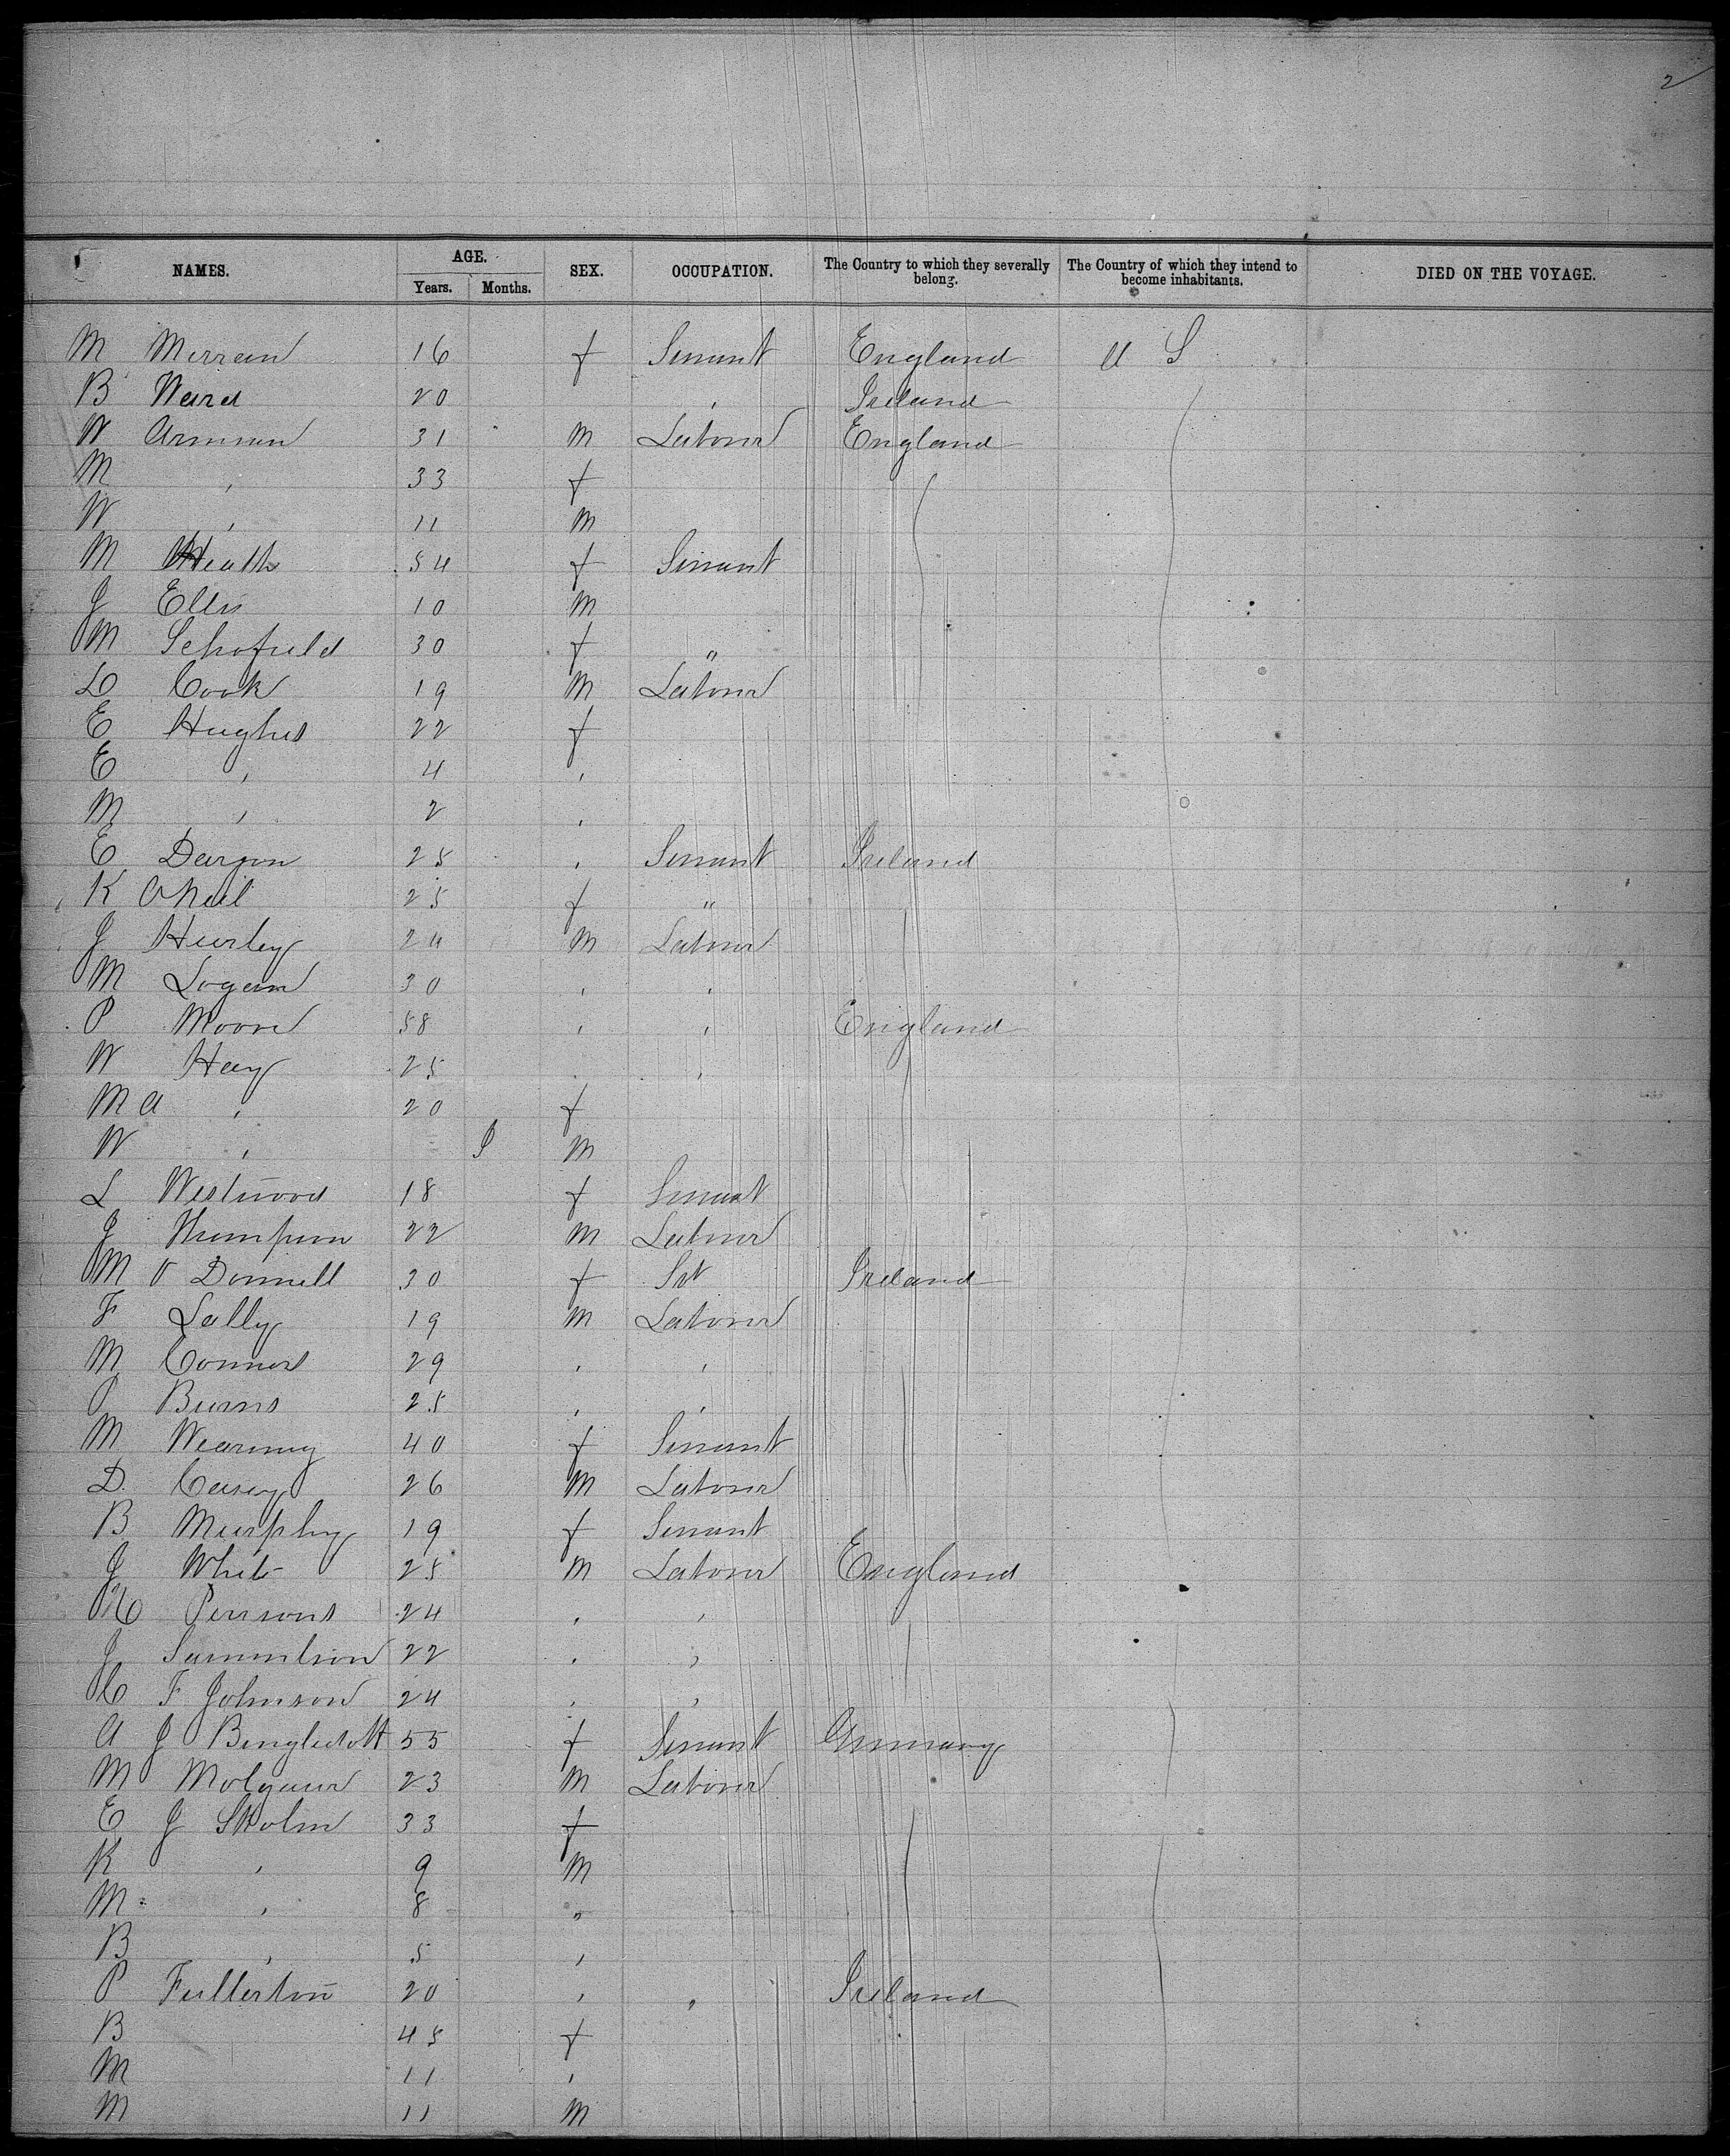 2
NAMES. AGE. Years. Months. SEX. OCCUPATION. The Country to which they severally belong. The Country of which they intend to become inhabitants. DIED ON THE VOYAGE.
M 16 f Servant England U S
B Ward 20 , Ireland
W 31 M Laborer England
M , 33 f
W , 11 M
M Heath 54 f Servant
J Ellis 10 M
M Schofield 30 f "
Cook 19 M Laborer
E Hughes 22 f
E , 4 ,
M , 2 ,
E 25 , Servant Ireland
K ONeil 25 f "
J Hurley 24 M Laborer
M Logan 30 , ,
P Moore 58 , , England
W Hay 25 ,
M A , 20 f
W , M
L Westwood 18 f Servant
J Thompson 22 M Laborer
M O Donnell 30 f Svt Ireland
F Lally 19 M Laborer
M Connor 29 , ,
P Burns 25 , ,
M 40 f Servant
D. Casey 26 M Laborer
B Murphy 19 f Servant
J White 25 M Laborer England
Persons 24 , ,
J 22 , ,
C F Johnson 24 , ,
A J 55 f Servant Germany
M 23 M Laborer
E J Skolm 33 f
K , 9 M
M , 8 "
B , 5 ,
P Fullerton 20 , " Ireland
B 45 f
M 11 ,
M 11 M